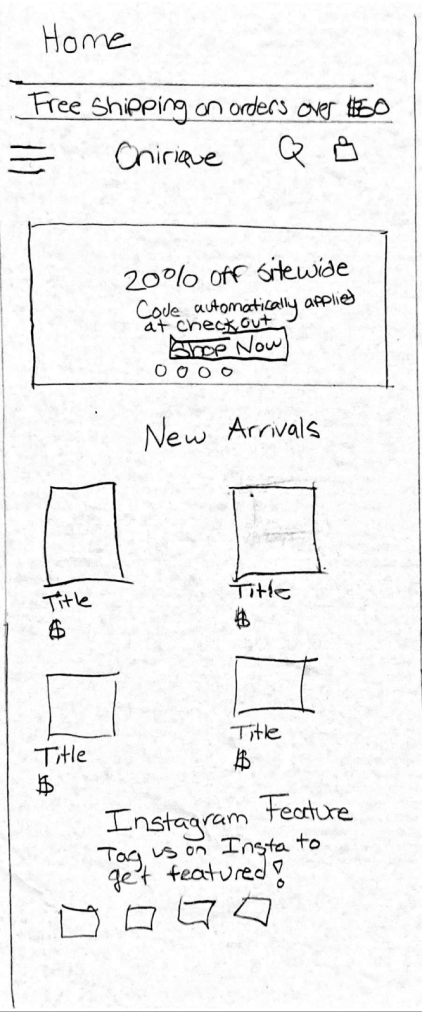 Home
Free Shipping on orders over $50
Onirique
20% off sitewide
Code automatically applied
at checkout
Shop Now
New Arrivals
Title
Title
$
$
Title
Title
$
$
Instagram Feature
Tag us on Insta to
get featured!